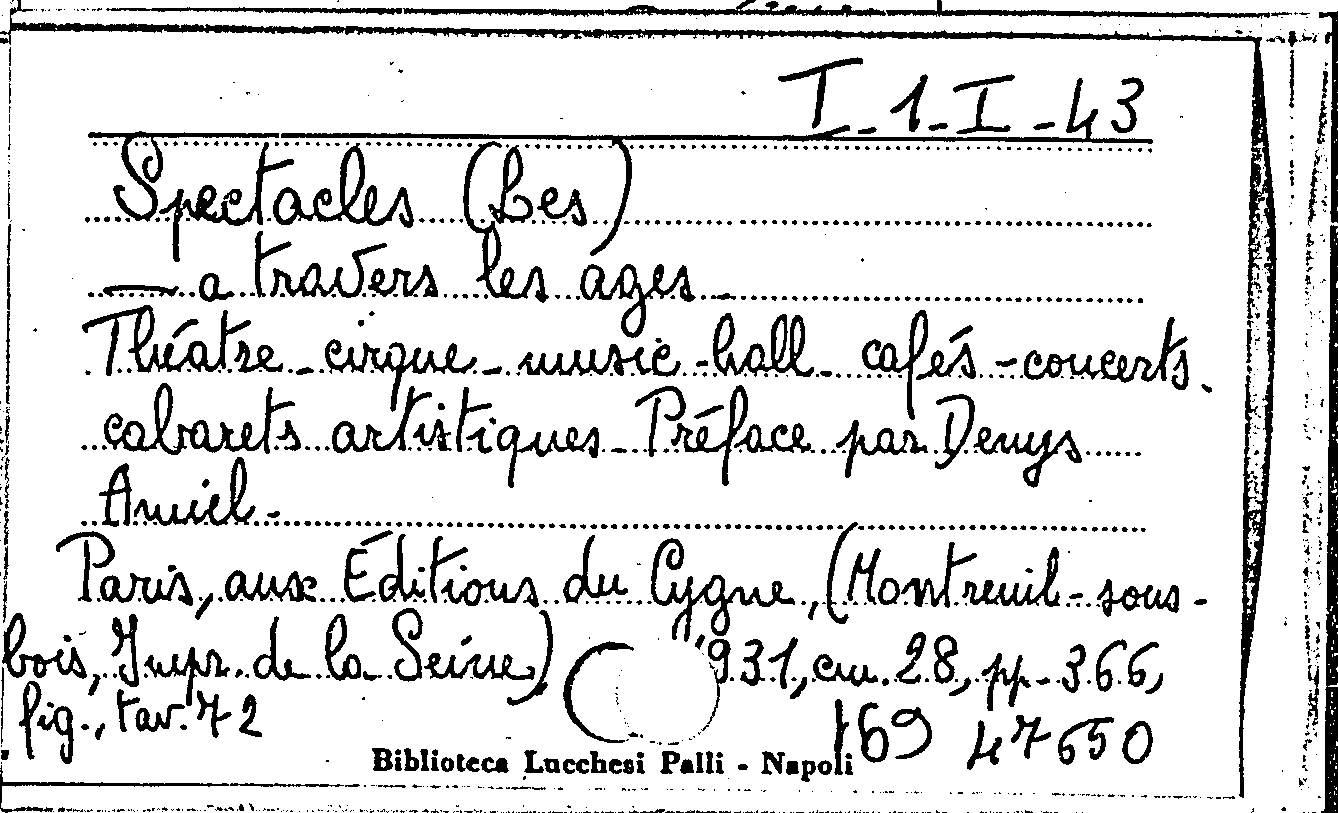 I-1-I-43
Spectacles (Les)
— a travers les âges_
Théatre_cirque_music-hall_cafés-concerts_
cabarets artistiques_Préface par Denys
Amiel-
Paris, aux Éditions du Cygne, (Montreuil-sous-
bois, Impr. de la Seine) 1931, cm. 28, pp. 366,
fig., tav. 72
169 47650
Biblioteca Lucchesi Palli - Napoli